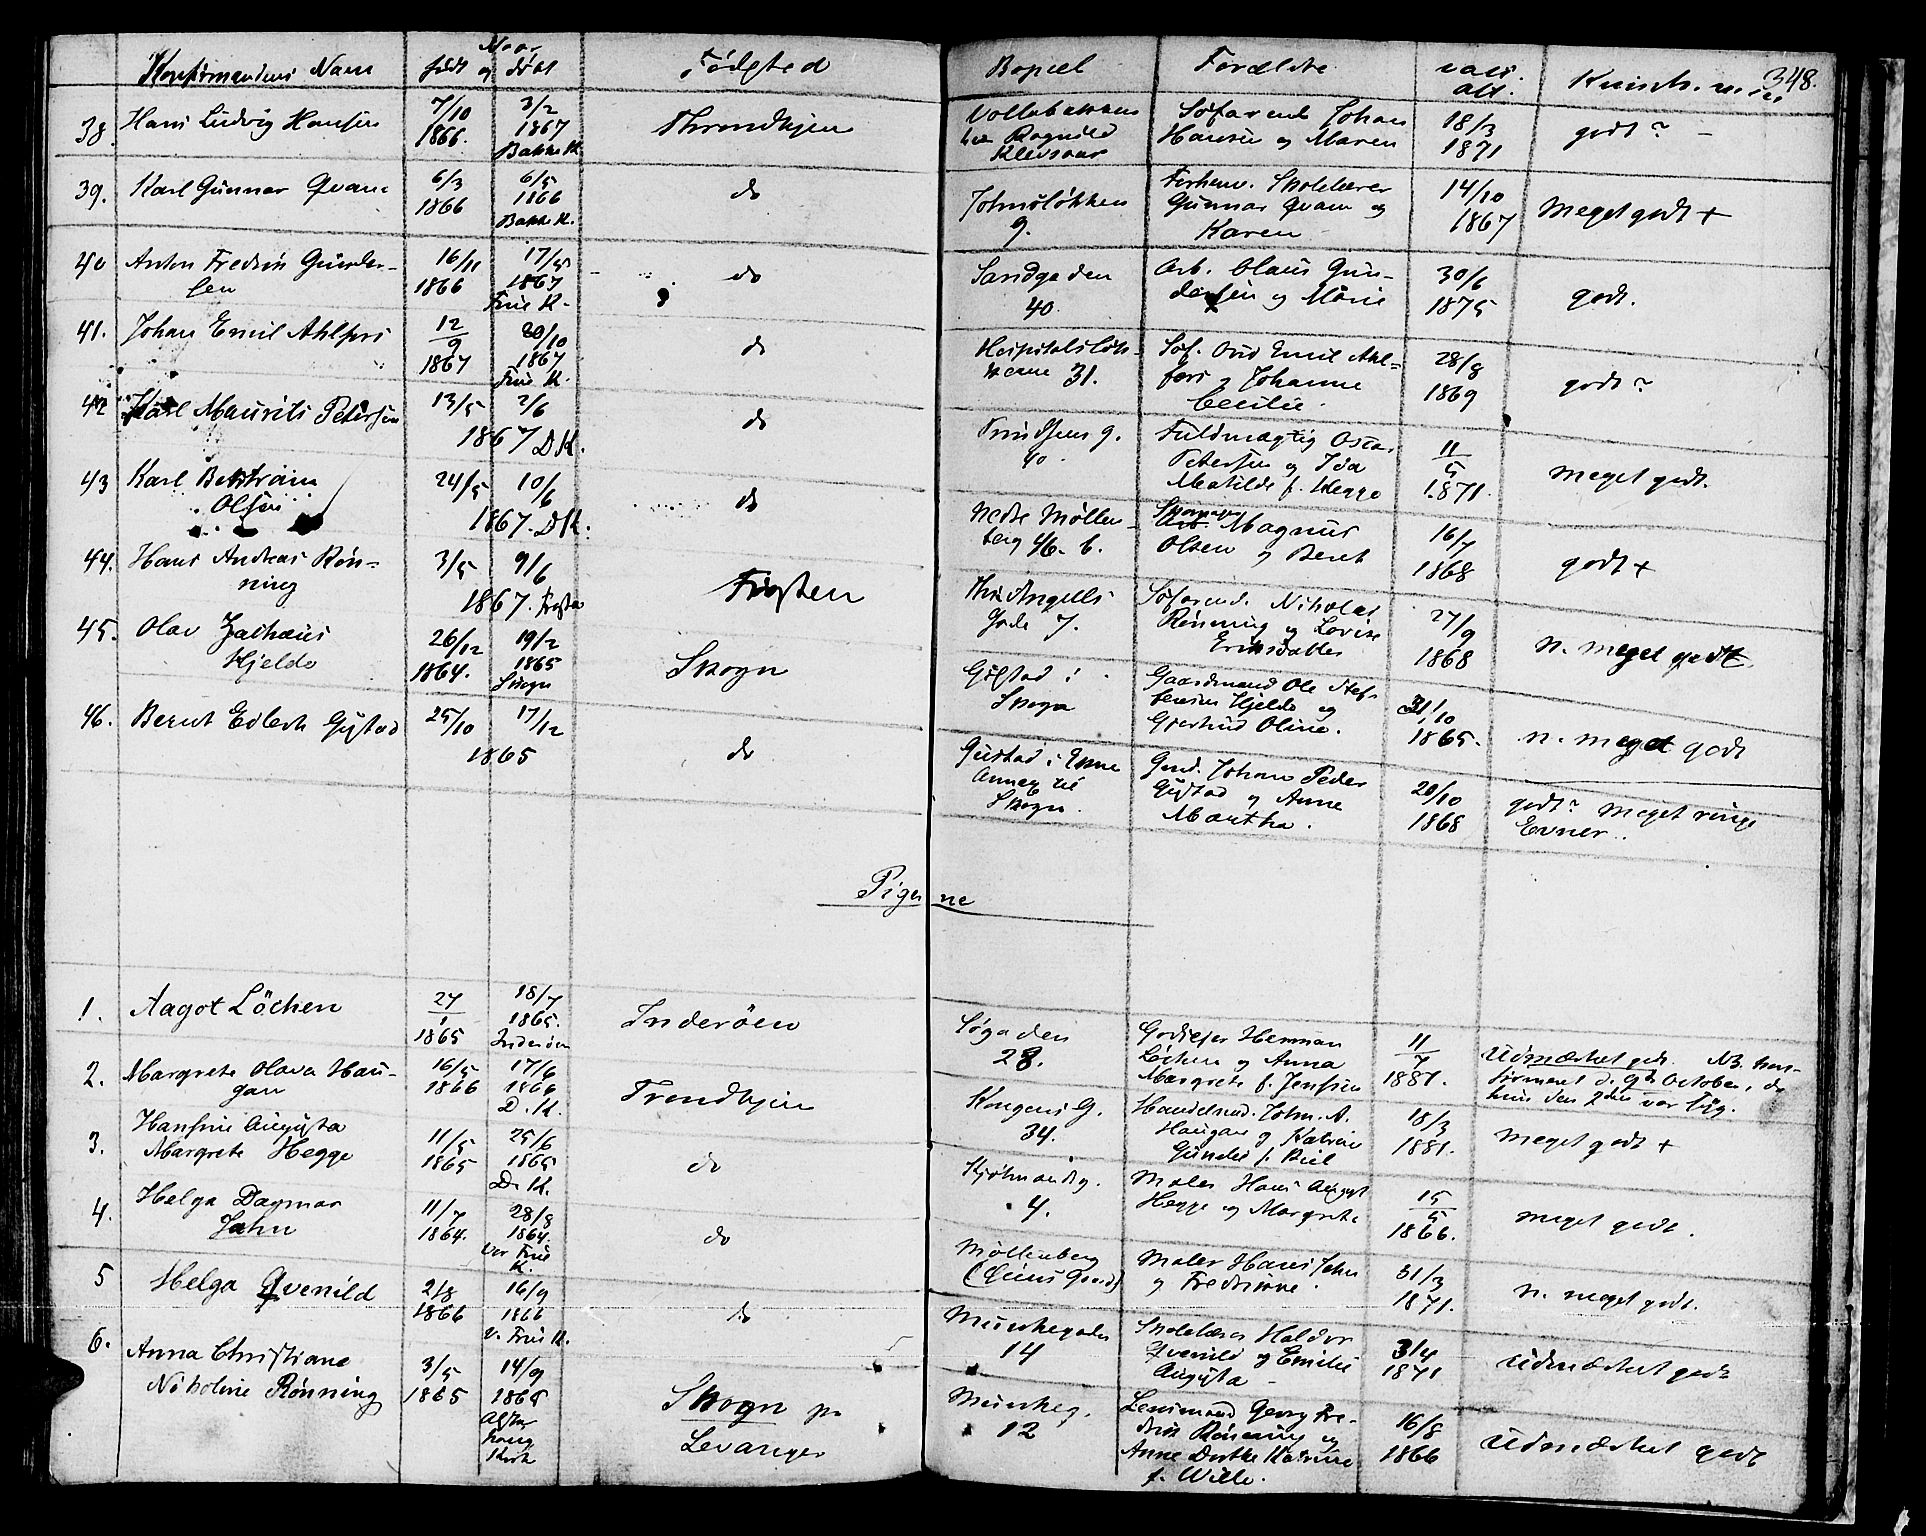 348.
Konfirmandens Navn | Naar født og døbt | Fødested | Bopæl | Forældre | vacc. att. | Kundsk. m.m.
38. Hans Ludvig Hansen | 7/10 1866. | 3/2 1867 Bakke K. | Throndhjem | Vollabakken hos Ragnild | Søfarend. Johan Hansen og Maren | 18/3 1871 | godt?
39. Karl Gunnar Qvam | 6/3 1866 | 6/5 1866 Bakke K. | do | 9. | Forhenv. Skolelærer Gunnar Qvam og Karen | 14/10 1867 | Meget godt +
40 Anton Fredrik Gunder- sen | 16/11 1866 | 17/5 1867 Frue K. | do | Sandgaden 40. | Arb. Olaus Gun- dersen og Marie | 30/6 1875 | godt.
41. Johan Emil Ahlfors | 12/9 1867 | 20/10 1867 Frue K. | do | Hospitalsløk- kerne 31. | Søf. Ovid Emil Ahl= fors og Johanne Cecilie. | 28/8 1869 | godt?
42 Karl Maurits Petersen | 13/5 | 2/6 1867 D K. | do | 40. | Fuldmægtig Oscar Petersen og Ida Matilde f. Hegge | 11/5 1871. | meget godt.
43 Karl Bertram Olsen | 24/5 | 10/6 1867. DK. | do | Nedre Møllen- berg 46. b. | Skomager Arb. Magnus Olsen og Beret | 16/7 1868 | godt +
44. Hans Andreas Røn- ning | 3/5 | 9/6 1867. Frosta | Frosten | Th. Angells Gade 7. | Søfarend. Nikolai Rønning og Lovise Eriksdatter | 27/9 1868 | n. meget godt
45. Olav Zachæus Hjelde | 26/12 1864. | 19/2 1865 Skogn | Skogn | Gustad i Skogn | Gaardmand Ole Stef- fensen Hjelde og Gjertrud Oline. | 31/10 1865. | n. meget godt
46. Bernt Edledt Gustad | 25/10 | 17/12 1865 | do | Gustad i Annex til Skogn. | Gmd. Johan Peder Gustad og Anne Martha. | 20/10 1868 | godt? meget ringe Evner.
Pigerne
1. Aagot Löchen | 27/1 1865 | 18/7 1865. Inderøen | Inderöen | Søgaden 28. | Godseier Herman Löchen og Anna Margrete f. Jenssen | 11/7 1881. | Udmærket godt. NB. kon- firmeret d. 9de October, da hun den 2den var syg.
2. Margrete Olava Hau- gan | 16/5 1866 | 17/6 1866 D. K. | Trondhjem | Kongens G. 34. | Handelsmd. John. A. Haugan og Katrine f. Kiel | 18/3 1881. | meget godt +
3. Hansine Augusta Margrete Hegge | 11/5 1865 | 25/6 1865 D. K. | do | Kjøbmandsg. 4. | Maler Hans August Hegge og Margrete | 15/5 1866. | meget godt.
4. Helga Dagmar Jahn | 11/7 1864. | 28/8 1864. Vor Frue K. | do | Møllenberg | Maler Hans Jahn og Fredrikke. | 31/3 1871. | n. meget godt.
5 Helga Qvenild | 2/8 1866 | 16/9 1866 v. Frue K. | do | Munkegaden 14 | Skolelærer Haldor Qvenild og Emilie Augusta | 3/4 1871 | Udmærket godt
6. Anna Christiane Nikoline Rønning | 3/5 1865 | 14/9 1865 Kirk | Skogn pr Levanger | Munkeg. 12 | Lensmand Georg Fre- drik Rønning og Anne Dorthe Katrine f. Wille. | 16/8 1866 | Udmærket godt